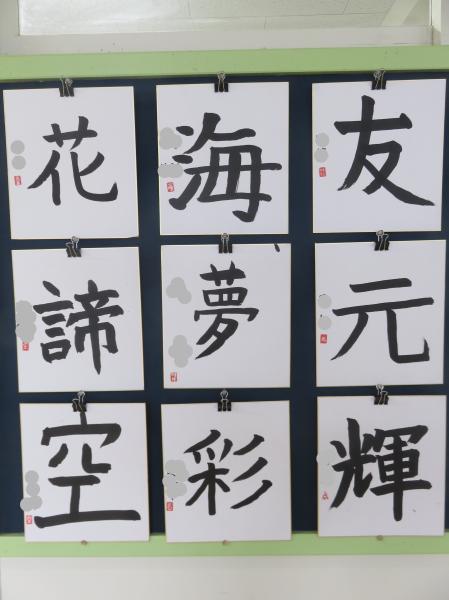 花
海
友
諦
夢
元
空
彩
輝